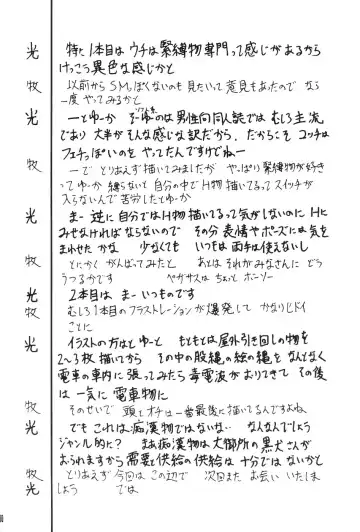 光 特に1本目は ウチは緊縛物専門って感じがあるから
けっこう異色な感じかと
牧 以前からSMっぽくないのも見たいって意見もあったので なら
一度 やってみるかと
光 ーとゆーか そーゆーのは男性向同人誌では むしろ主流
であり 大半がそんな感じな訳だから、だからこそ コッチは
フェチっぽいのを やってたんですけどねー
牧 ーで とりあえず描いてみましたが やっぱり緊縛物が好き
ってゆーか 縛らないと 自分の中でH物描いてるってスイッチが
入らないんで 苦労したとゆーか
光 まー 逆に自分ではH物描いてるって気がしないのに Hに
みせなければならないので その分 表情やポーズには気を
まわせた かな 少なくても いつもは両手は使えないし
牧 とにかく がんばってみたと あとは それがみなさんに どう
うつるかです ヤガザスは ちょっと ホーソー
光 2本目は まー いつものです
牧 むしろ1本目のフラストレーションが爆発して かなりヒドイ
ことに
光 イラストの方はと ゆーと もともとは屋外引き回しの物を
2〜3枚 描いてから その中の股縄の絵の縄を なんとなく
電車の車内に 張ってみたら 毒電波がおりてきて その後
は 一気に 電車物に
牧 そのせいで 頭とオチは一番最後に描いてるんですよね
光 でも これは痴漢物ではないな‥ なんなんでしょう
ジャンル的に? まぁ痴漢物は 大御所の黒犬さんが
おられますから 需要と供給の供給は 十分ではないかと
牧 とりあえず 今回は この辺で 次回また お会い いたしま
光 しょう では